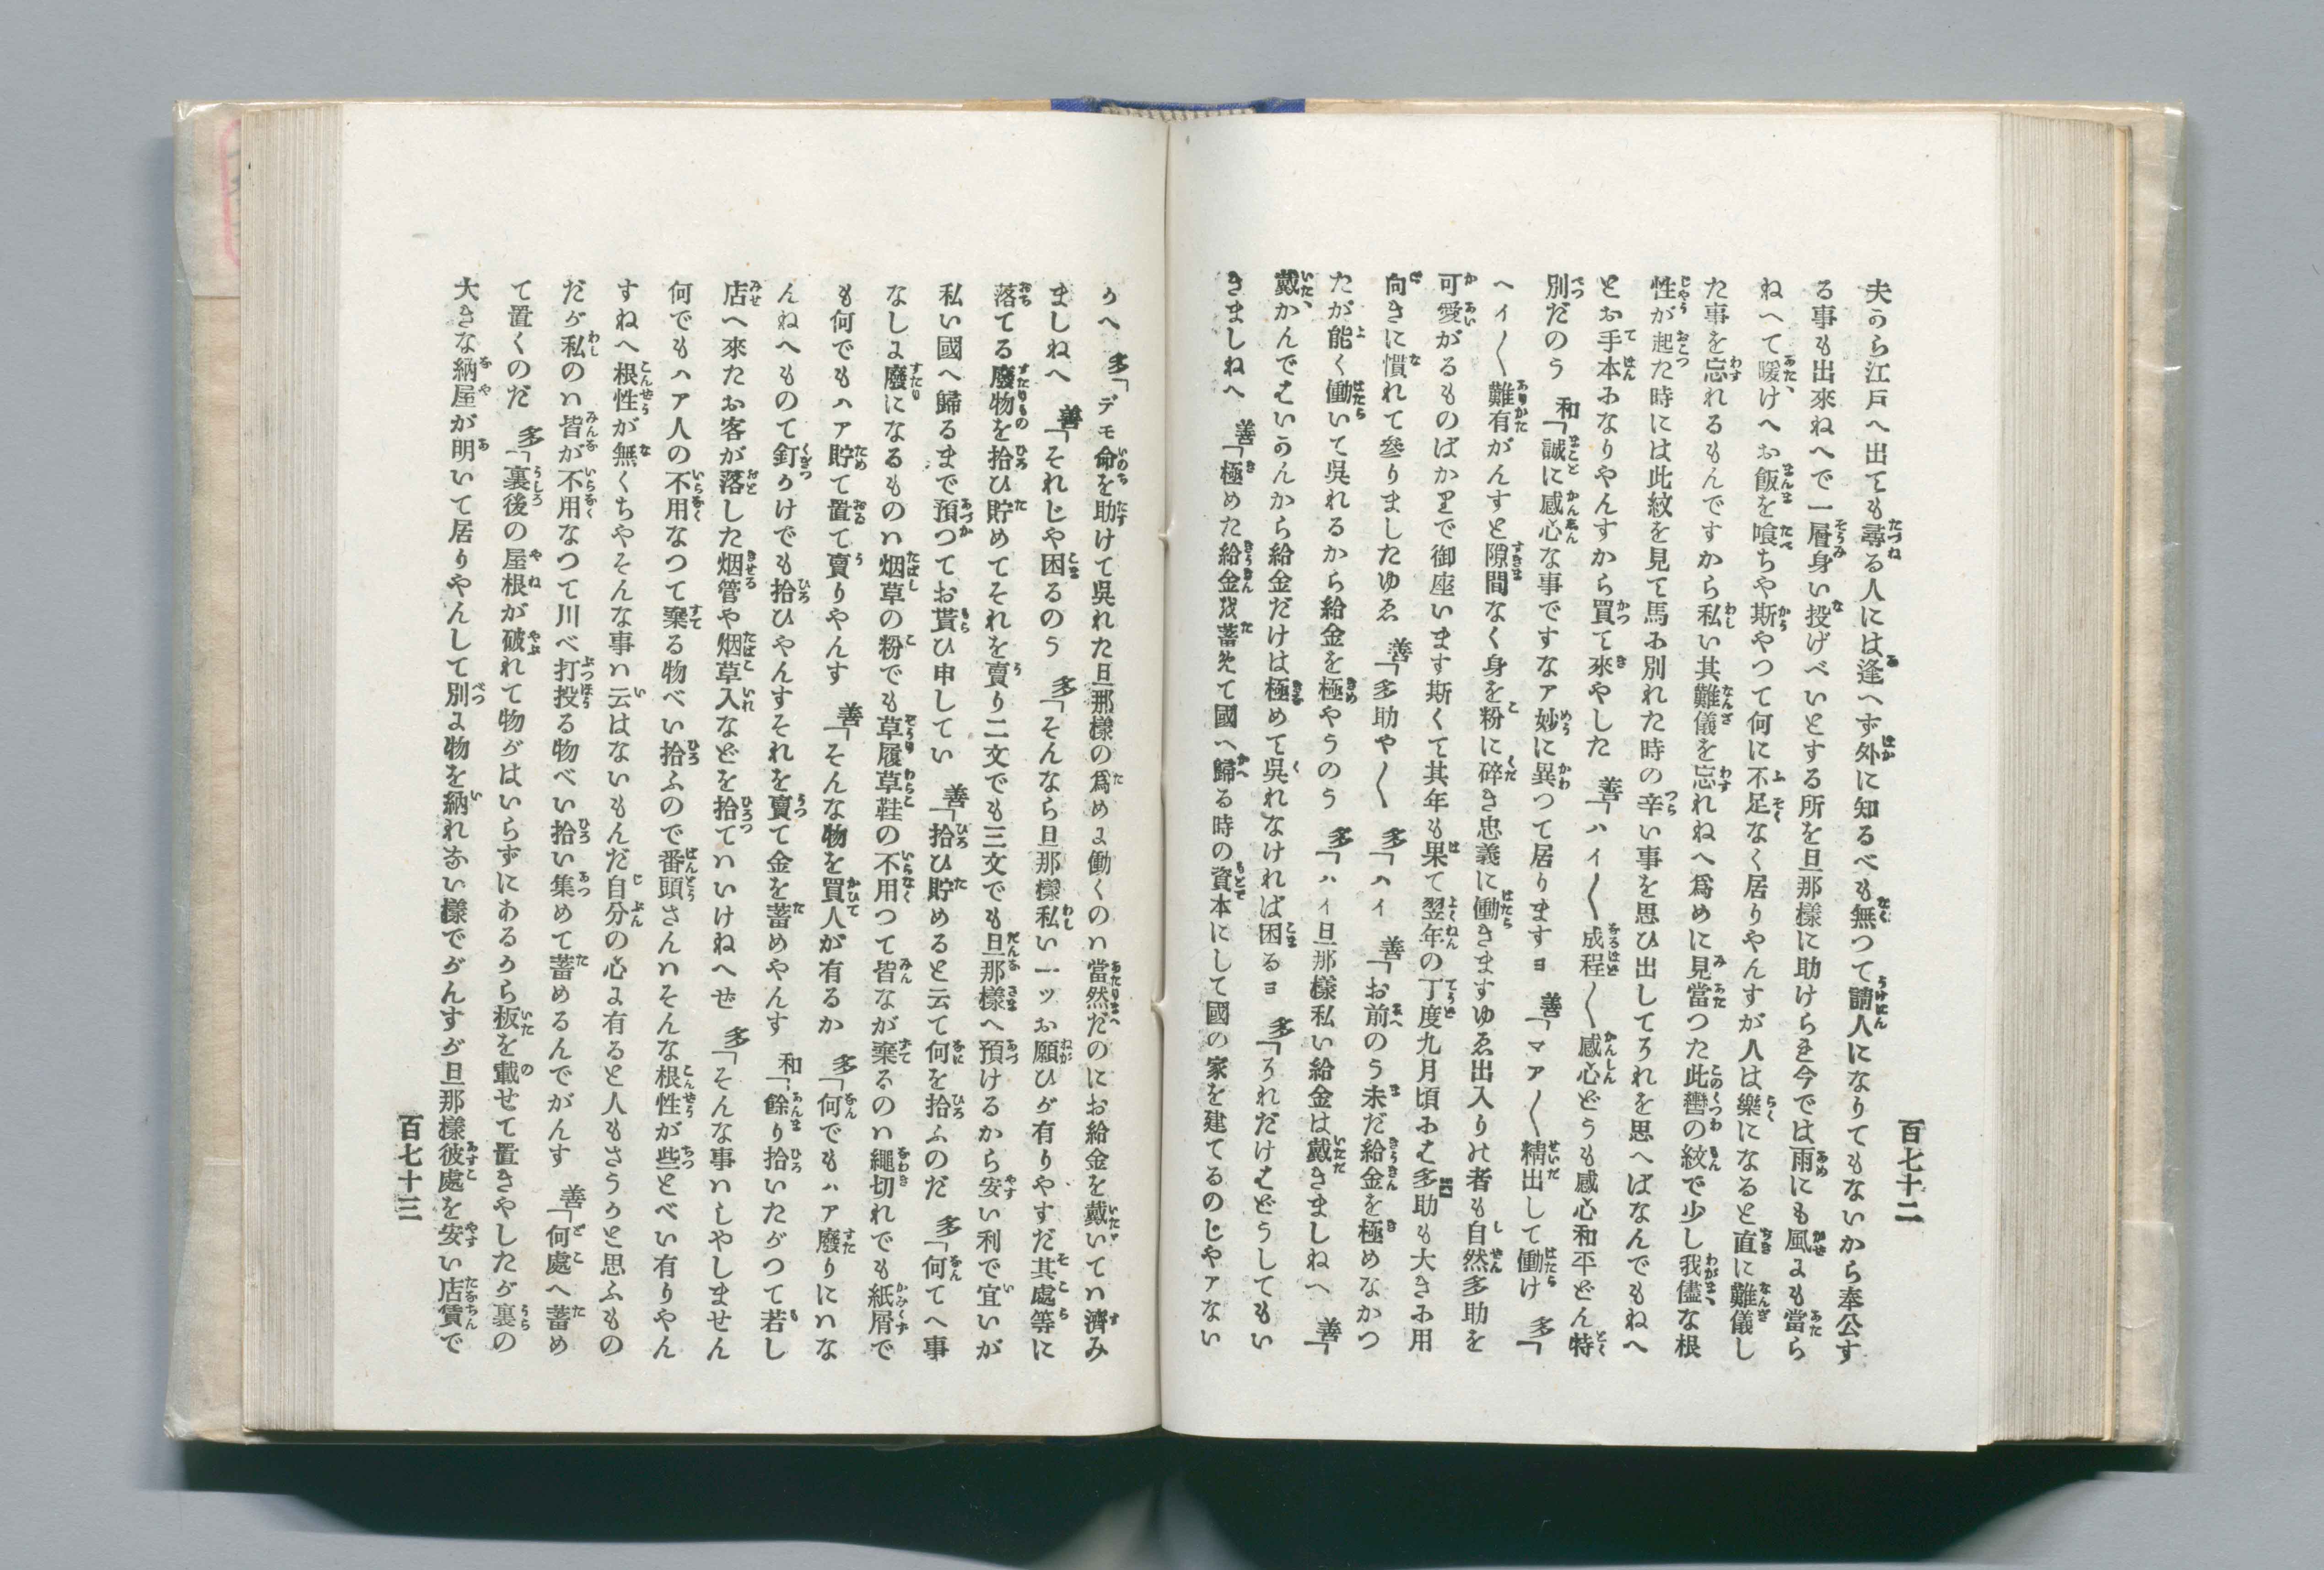 百七十二
夫から江戸へ出ても尋る人には逢へず外に知るべも無つて請人になりてもないから奉公す
る事も出來ねへで一層身い投げべいとする所を旦那樣に助けられ今では雨にも風にも當ら
ねへて暖けへお飯を喰ちや斯やつて何に不足なく居りやんすが人は樂になると直に難儀し
た事を忘れるもんですから私い其難儀を忘れねへ爲めに見當つた此轡の紋で少し我儘な根
性が起た時には此紋を見て馬に別れた時の辛い事を思ひ出してそれを思へばなんでもねへ
とお手本になりやんすから買て來やした　善「ハイ〱成程〱感心どうも感心和平どん特
別だのう　和「誠に感心な事ですなア妙に異つて居りますヨ　善「マア〱精出して働け　多「
ヘイ〱難有がんすと隙間なく身を粉に碎き忠義に働きますゆゑ出入りの者も自然多助を
可愛がるものばかりで御座います斯くて其年も果て翌年の丁度九月頃には多助も大きに用
向きに慣れて參りましたゆゑ　善「多助や〱　多「ハイ　善「お前のう未だ給金を極めなかつ
たが能く働いて呉れるから給金を極やうのう　多「ハイ旦那樣私い給金は戴きましねへ　善「
戴かんではいかんから給金だけは極めて呉れなければ困るヨ　多「それだけはどうしてもい
きましねへ　善「極めた給金を蓄えて國へ歸る時の資本にして國の家を建てるのじやアない
かへ　多「デモ命を助けて呉れた旦那樣の爲めに働くのハ當然だのにお給金を戴いてハ濟み
ましねへ　善「それじや困るのう　多「そんなら旦那樣私い一ッお願ひが有りやすだ其處等に
落てる廢物を拾ひ貯めてそれを賣り二文でも三文でも旦那樣へ預けるから安い利で宜いが
私い國へ歸るまで預つてお貰ひ申してい　善「拾ひ貯めると云て何を拾ふのだ　多「何てへ事
なしに廢になるものハ烟草の粉でも草履草鞋の不用つて皆なが棄るのハ繩切れでも紙屑で
も何でもハア貯て置て賣りやんす　善「そんな物を買人が有るか　多「何でもハア廢りにハな
んねへもので釘かけでも拾ひやんすそれを賣て金を蓄めやんす　和「餘り拾いたがつて若し
店へ來たお客が落した烟管や烟草入などを拾てハいけねへぜ　多「そんな事ハしやしません
何でもハア人の不用なつて棄る物べい拾ふので番頭さんハそんな根性が些とべい有りやん
すねへ根性が無くちやそんな事ハ云はないもんだ自分の心に有ると人もさうかと思ふもの
だが私のハ皆が不用なつて川べ打投る物べい拾い集めて蓄めるんでがんす　善「何處へ蓄め
て置くのだ　多「裏後の屋根が破れて物がはいらずにあるから板を載せて置きやしたが裏の
大きな納屋が明いて居りやんして別に物を納れない樣でがんすが旦那樣彼處を安い店賃で
百七十三